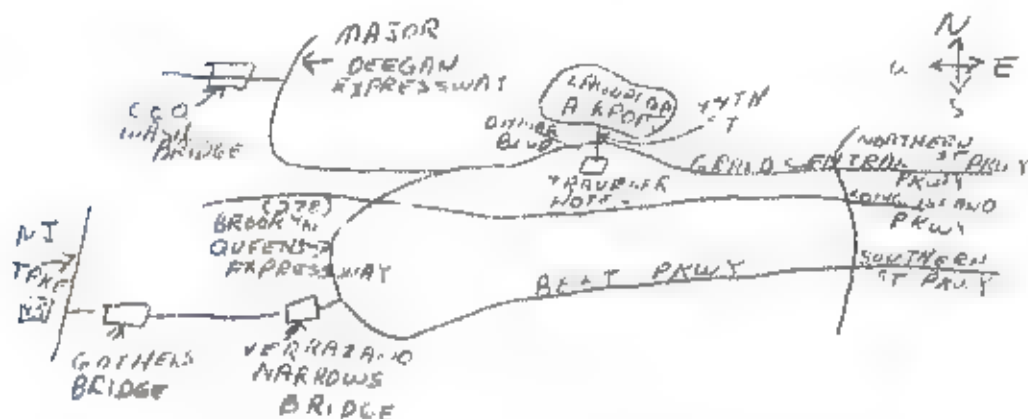 MAJOR
DEEGAN
EXPRESSWAY
N
W E
S
GEO
WASH
BRIDGE
LAGUARDIA
AIRPORT
DITMAR
BLVD
TRAVELER
HOTEL
NORTHERN
ST PKWY
GRAND CENTRAL
PKWY
LONG ISLAND
PKWY
(278)
BROOKLYN
QUEENS
EXPRESSWAY
BELT PKWY
SOUTHERN
ST PKWY
NJ
TPKE
GOTHELS
BRIDGE
VERRAZANO
NARROWS
BRIDGE